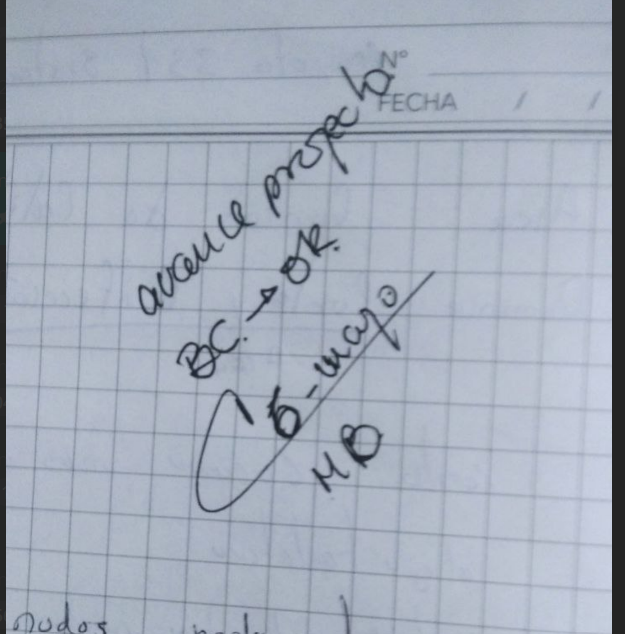 Nº
FECHA / /
avance proyecto
BC. → OK.
6-mayo
MB
nudos